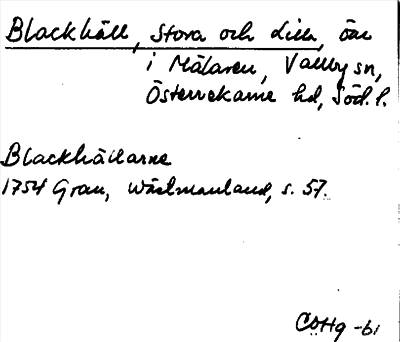 Blackhäll, Stora och Lilla, öar
i Mälaren, Vallby sn,
Österrekarne hd, Söd. l.
Blackhällarne
1754 Grau, Wästmanland, s. 57.
CÖHg -61